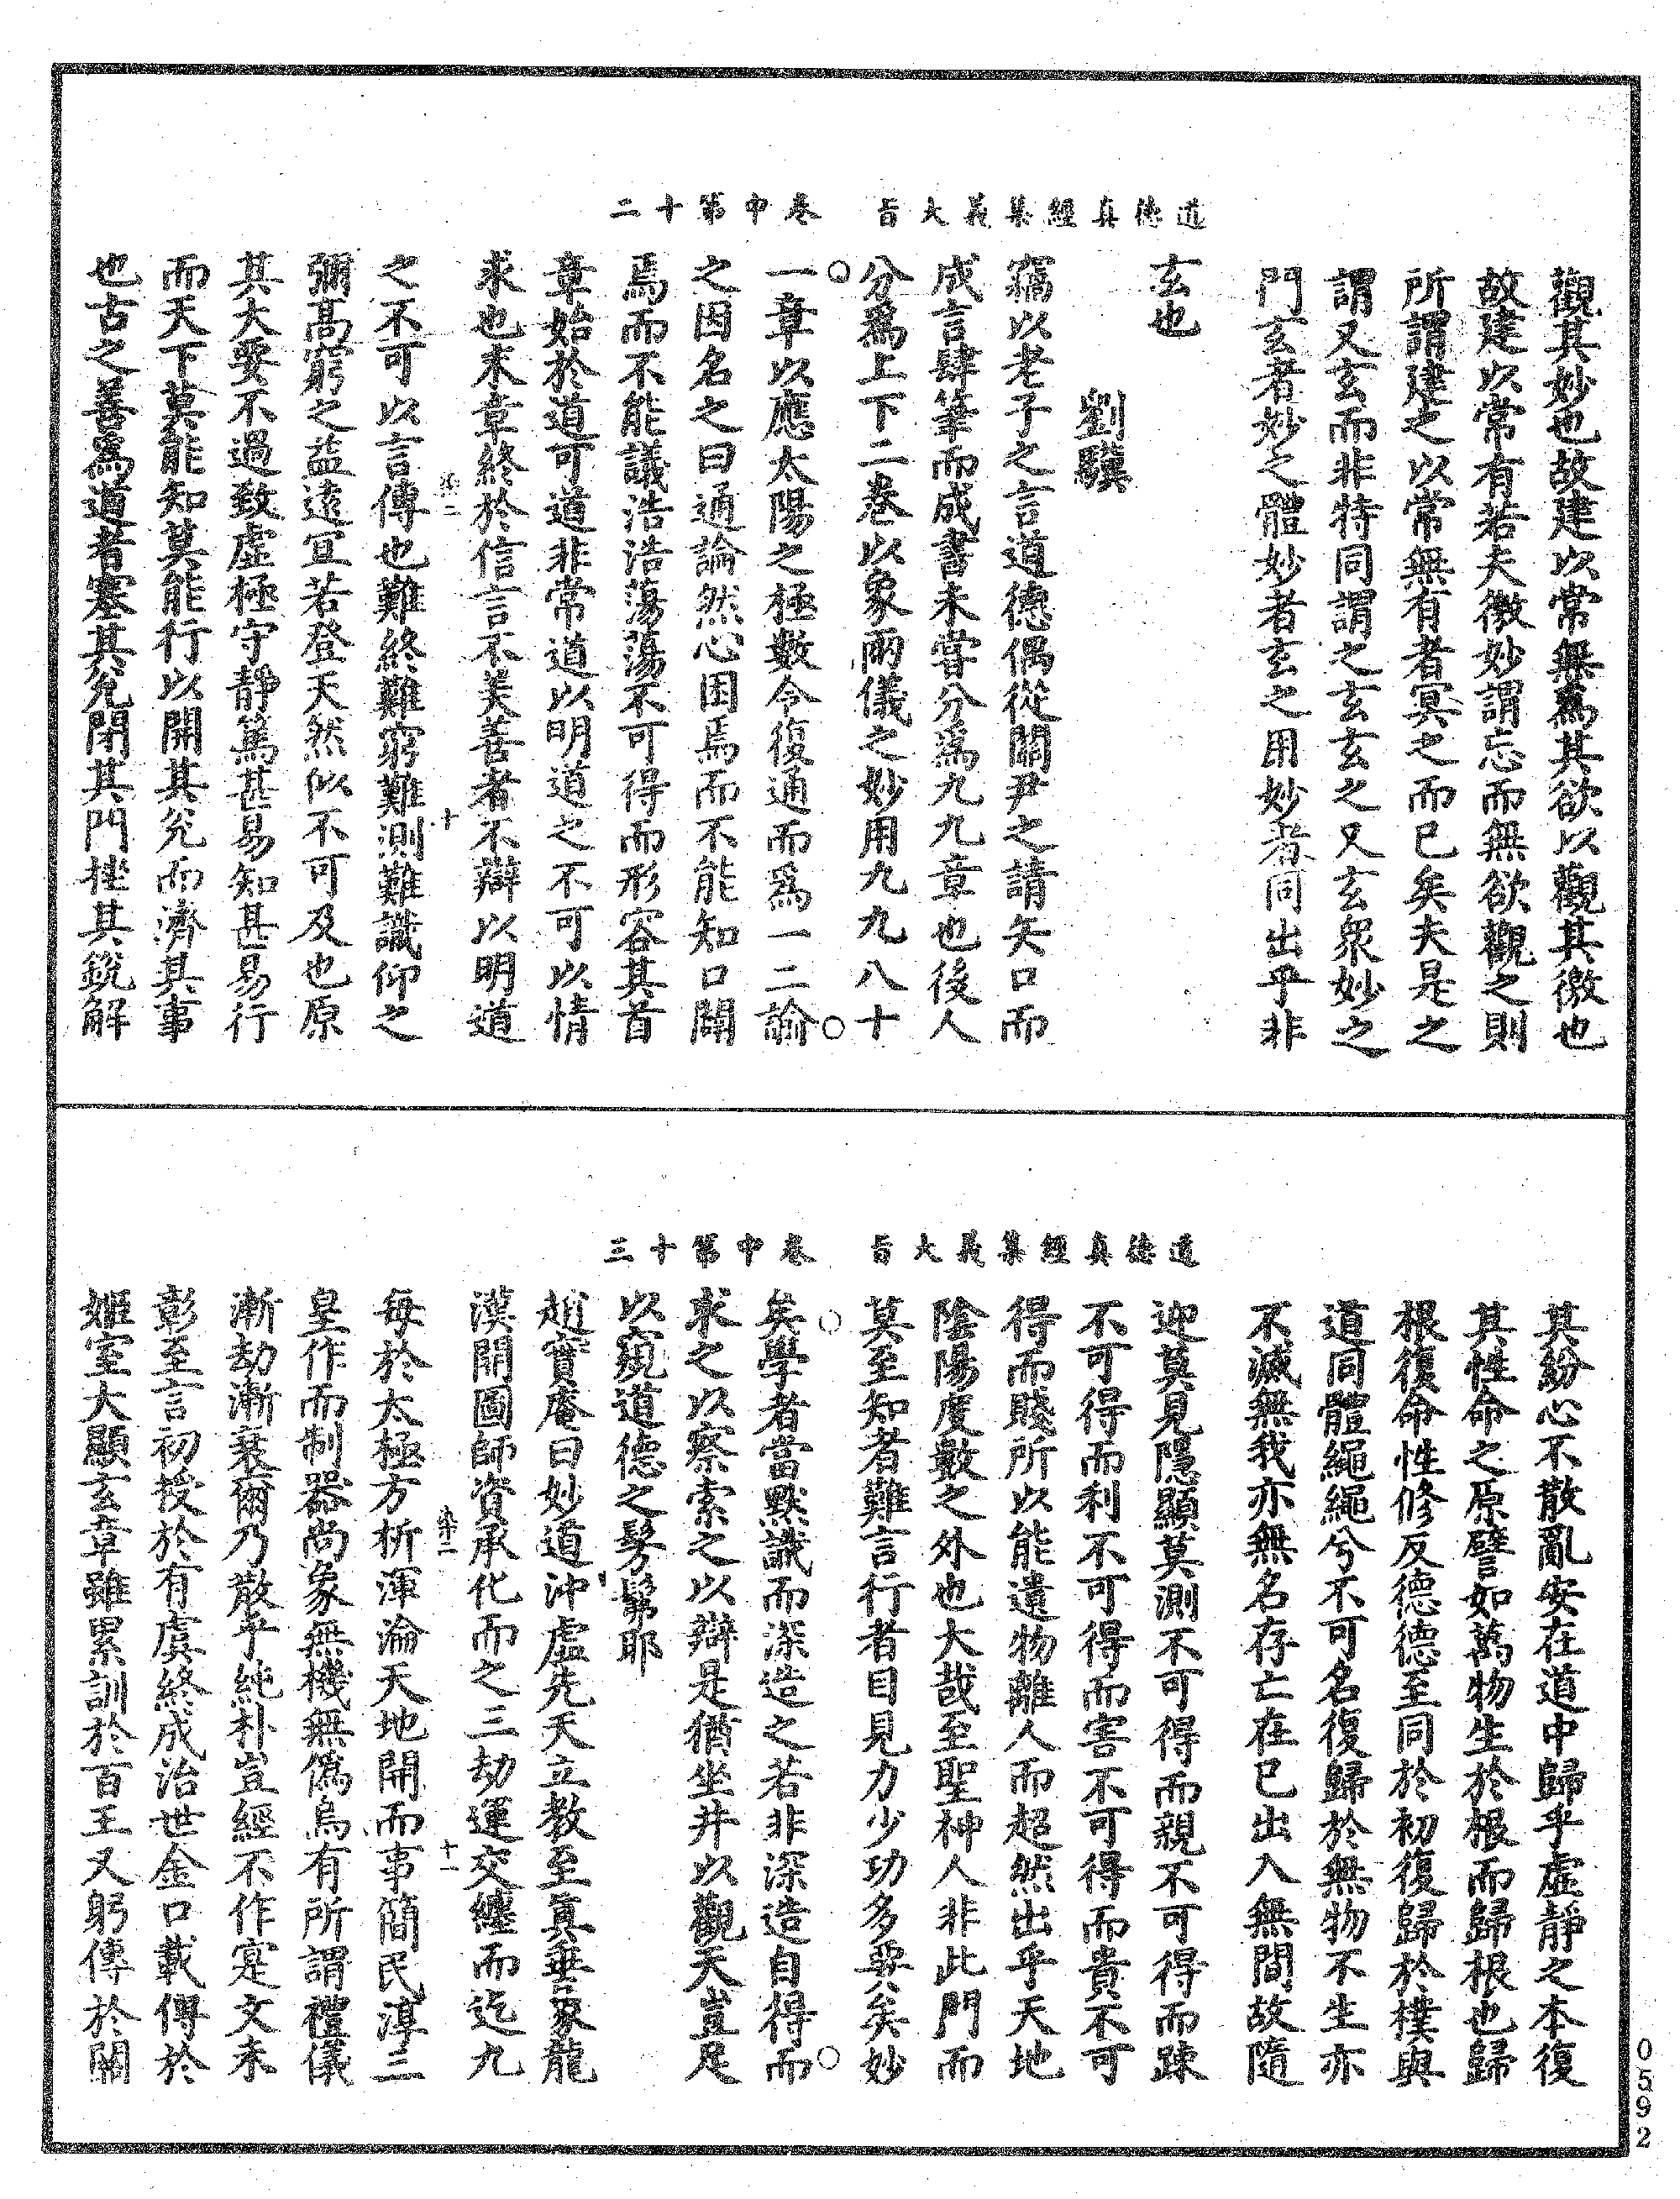 道德真經集義大旨　卷中第十二
觀其妙也故建以常無爲其欲以觀其徼也
故建以常有若夫徼妙謂忘而無欲觀之則
所謂建之以常無有者冥之而已矣夫是之
謂又玄而非特同謂之玄玄之又玄衆妙之
門玄者妙之體妙者玄之用妙者同出乎非
玄也
劉驥
竊以老子之言道德偶從關尹之請矢口而
成言肆筆而成書未嘗分爲九九章也後人
分爲上下二卷以象兩儀之妙用九九八十
一章以應太陽之極數令復通而爲一二論
之因名之曰通論然心困焉而不能知口闢
焉而不能議浩浩蕩蕩不可得而形容其首
章始於道可道非常道以明道之不可以情
求也末章終於信言不美善者不辯以明道
之不可以言傳也難終難窮難測難識仰之
彌高窮之益遠宜若登天然似不可及也原
其大要不過致虛極守靜篤甚易知甚易行
而天下莫能知莫能行以開其兌而濟其事
也古之善爲道者塞其兌閉其門挫其銳解
十
道德真經集義大旨　卷中第十三
其紛心不散亂安在道中歸乎虛靜之本復
其性命之原譬如萬物生於根而歸根也歸
根復命性修反德德至同於初復歸於樸與
道同體繩繩兮不可名復歸於無物不生亦
不滅無我亦無名存亡在已出入無間故隨
迎莫見隱顯莫測不可得而親不可得而踈
不可得而利不可得而害不可得而貴不可
得而賤所以能遺物離人而超然出乎天地
陰陽度數之外也大哉至聖神人非此門而
莫至知者難言行者目見力少功多要矣妙
矣學者當默識而深造之若非深造自得而
求之以察索之以辯是猶坐井以觀天豈足
以窺道德之髣髴耶
趙實庵曰妙道沖虛先天立教至真垂象龍
漢開圖師資承化而之三劫運交纏而迄九
每於太極方析渾淪天地開而事簡民淳三
皇作而制器尚象無機無僞烏有所謂禮儀
漸劫漸衰爾乃散乎純朴豈經不作寔文未
彰至言初授於有虞終成治世金口載傳於
姬室大顯玄章雖累訓於百王又躬傳於關
十一
0592